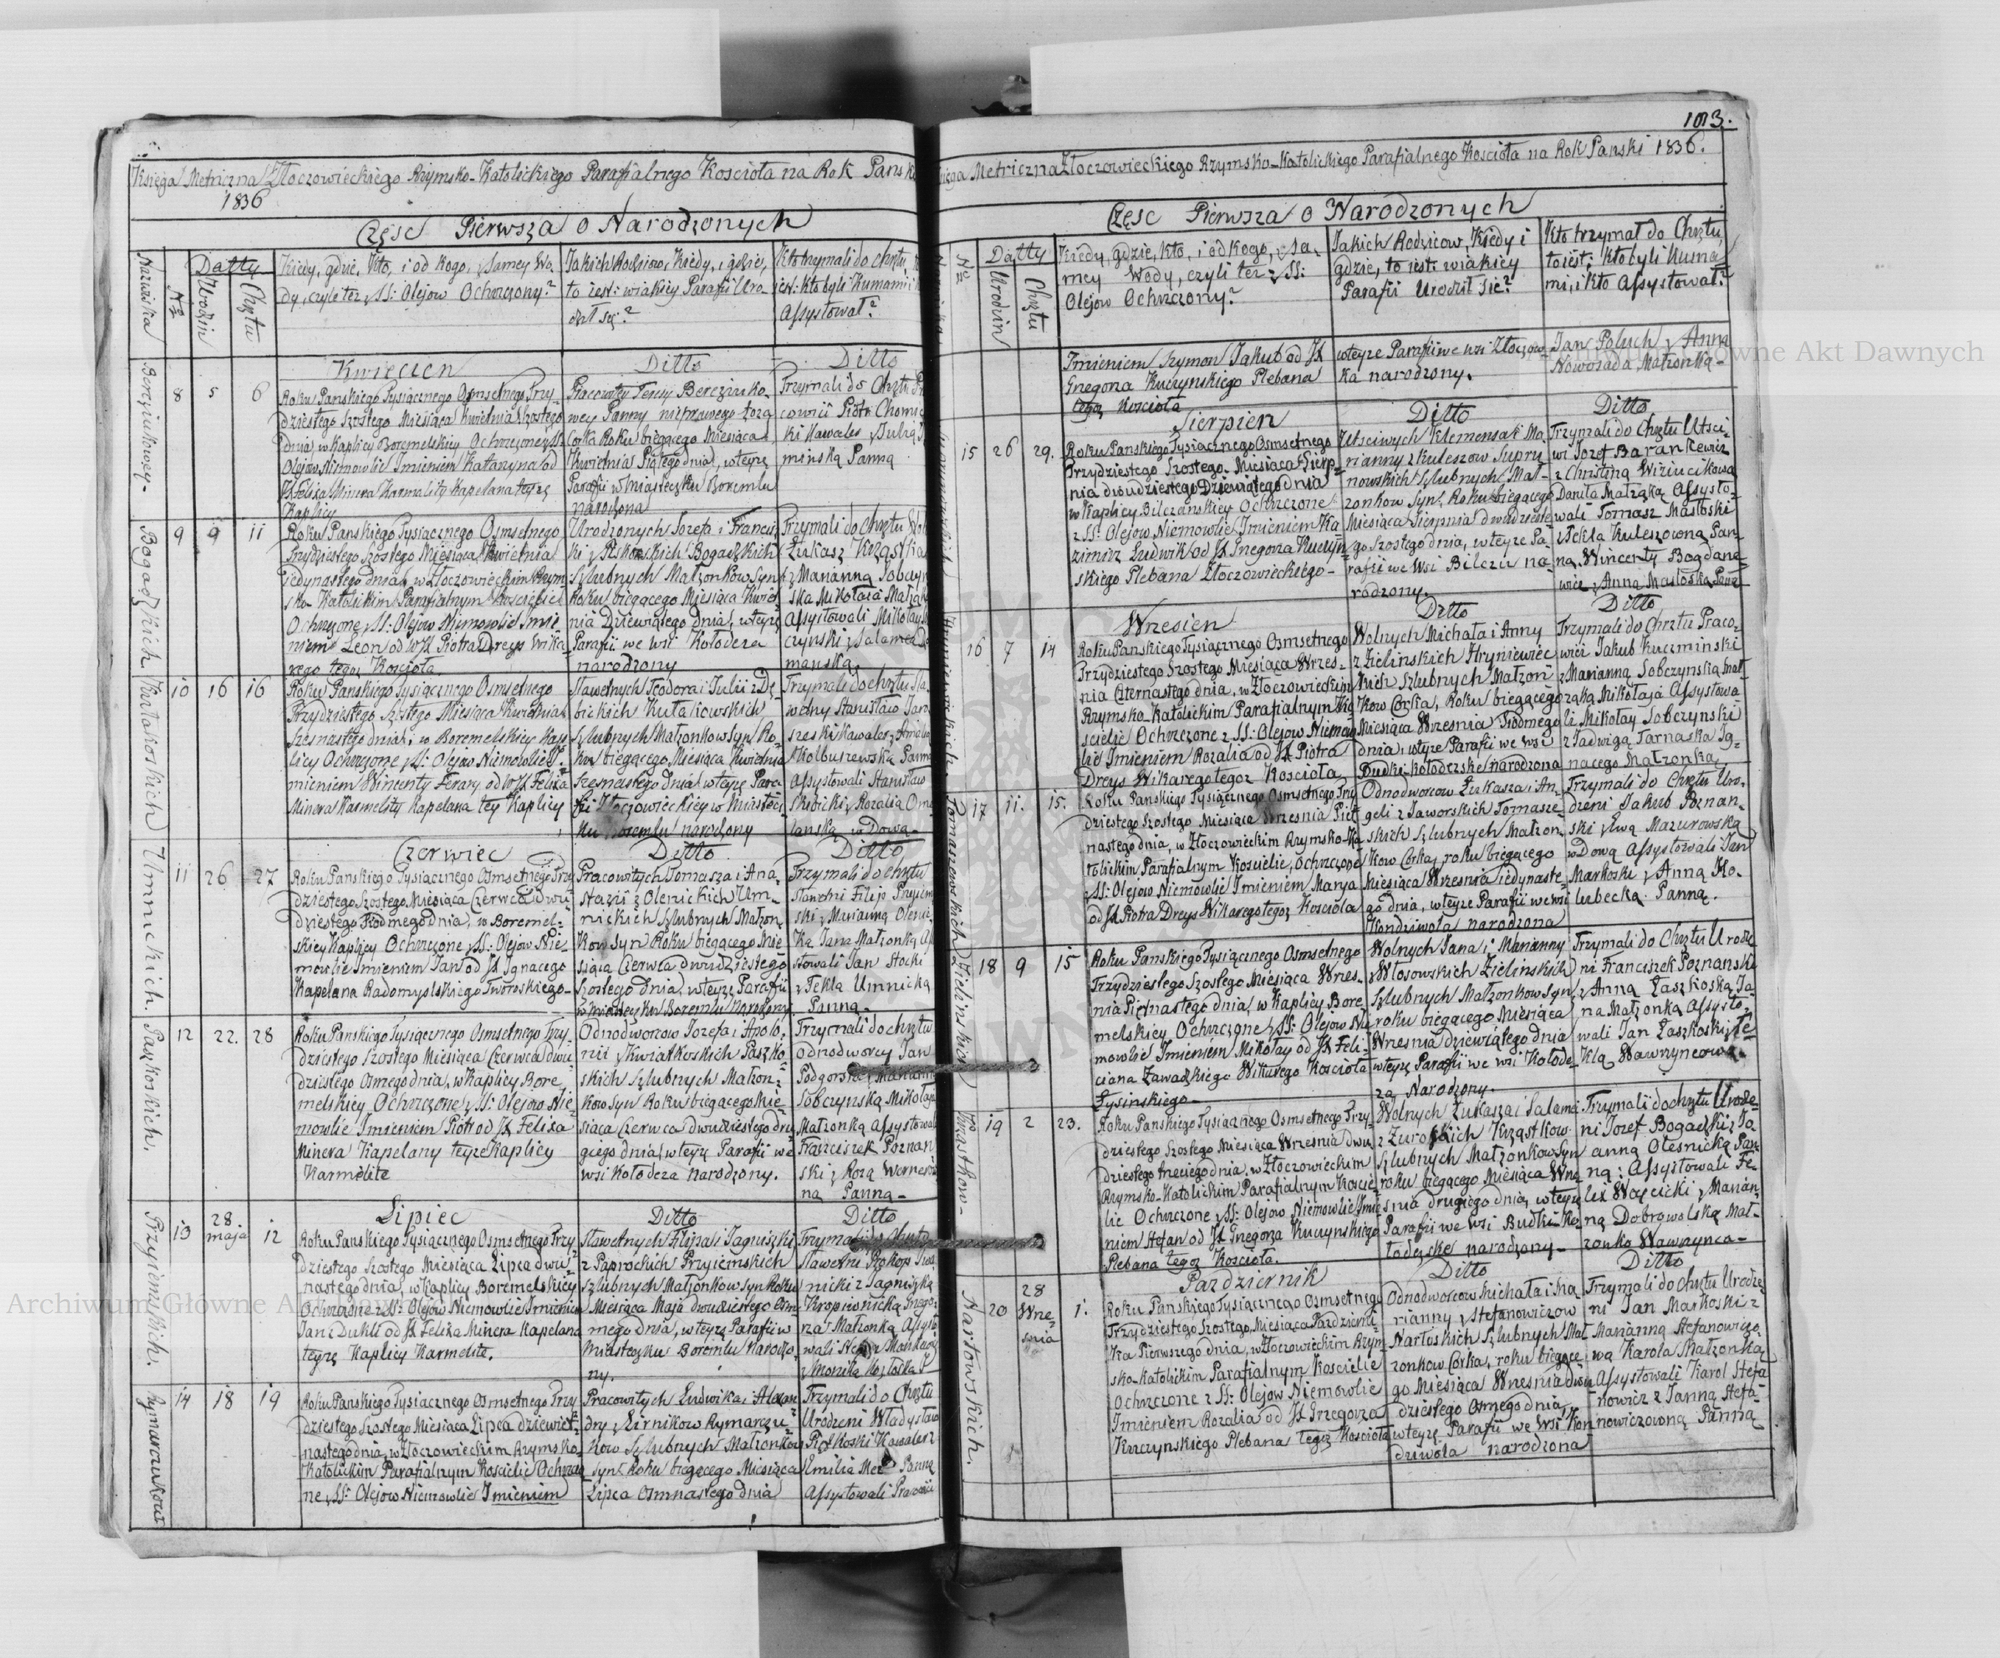 Księga Metriczna Złoczowieckiego Rzymsko-Katolickiego Parafialnego Kościoła na Rok Pański
1836
Częsc Pierwsza o Narodzonych
Nazwiska
Nro
Datty
Urodzin
Chrztu
Kiedy, gdzie, kto, i od kogo, z samey Wo-
dy, czyli też z SS: Olejow Ochrzczony?
Jakich Rodziców, Kiedy, i gdzie,
to iest: w iakiey Parafii Uro-
dził się?
Kto trzymali do chrztu
iest: Kto byli Kumami i
Assystował?
Kwiecien
Ditto
Ditto
8
5
6
Roku Pańskiego Tysiącznego Osmsetnego Trzy-
dziestego Szostego Miesiąca Kwietnia Szostego
dnia w Kaplicy Boremelskiey Ochrzczone z SS:
Olejow Niemowlie Imieniem Katarzyna od
JX Felixa Minera Karmelity Kapelana teyże
Kaplicy
Pracowitey Teresy Berczuko-
wey Panny nieprawego łoża
Corka Roku bieżącego Miesiąca
Kwietnia Piątego dnia, w teyże
Parafii w Miasteczku Boremlu
narodzona
Trzymali do Chrztu
cowici Piotr
ki Kawaler, z Julią
minską Panną
Bogadzkich
9
9
11
Roku Pańskiego Tysiącznego Osmsetnego
Trzydziestego Szostego Miesiąca Kwietnia
iedynastego dnia, w Złoczowieckim Rzym
sko Katolikim Parafialnym Kosciele
Ochrzczone z SS: Olejow Niemowlie Imie
niem Leon od WJX Piotra Dreys Wika-
rego tegoż Kościoła
Urodzonych Jozefa i Francis
ki z Peskorskich Bogadzkich
Szlubnych Małżonkow Syn
Roku bieżącego Miesiąca Kwiet
nia Dziewiątego dnia, w teyże
Parafii we wsi Kołodeza
narodzony
Trzymali do chrztu
Łukasz Krząstka
z Marianną Sobczyn
ska Mikołaia Małża
Assystowali Mikołay
czynski z Salomea
manską
Kutakoskich
10
16
16
Roku Pańskiego Tysiącznego Osmsetnego
Trzydziestego Szostego Miesiąca Kwietnia
Szesnastego dnia, w Boremelskiey Kap
licy Ochrzczone z SS: Olejow Niemowlie
mieniem Wincenty Ferary od WJX Felixa
Minera Karmelity Kapelana tey Kaplicy
Sławetnych Teodora i Julii z Dę
bickich Kutakowskich
Szlubnych Małżonkow Syn Ro-
ku bieżącego, Miesiąca Kwietnia
Szesnastego dnia w teyże Para
fii Złoczowieckiey w Miastecz
ku Boremlu narodzony
Trzymali do chrztu Sła
wetny Stanisław
szeski Kawaler z Amelią
Kolbuszewską Panną
Assystowali Stanisław
Skwicki z Rozalią
lanską w Dową-
Czerwiec
Ditto
Ditto
Uminickich.
11
26
27
Roku Pańskiego Tysiącznego Osmsetnego Trzy
dziestego Szostego Miesiąca Czerwca dwu
dziestego Siodmego dnia, w Boremel-
skiey Kaplicy Ochrzczone z SS: Olejow Nie-
mowlie Imieniem Jan od JX Ignacego
Kapelana Radomyslskiego Tworoskiego-
Pracowitych Tomasza i Ana-
stazii z Olenickich Um-
nickich Szlubnych Małżon-
kow Syn Roku bieżącego Mie-
siąca Czerwca dwudziestego
Szostego dnia, w teyże Parafii
w Miasteczku Boremlu Narodzony
Trzymali do chrztu
Sławetni Filip Przyiem
ski z Marianną Olenic
ką Jana Małżonką As
stowali Jan Stocki
z Tekla Umnicką
Panną
Paszkoskich.
12
22.
28
Roku Pańskiego Tysiącznego Osmsetnego Trzy-
dziestego Szostego Miesiąca Czerwca dwu-
dziestego Osmego dnia, w Kaplicy Bore
melskiey Ochrzczone z SS: Olejow Nie
mowlie Imieniem Piotr od JX Felixa
Minera Kapelany teyże Kaplicy
Karmelite
Odnodworcow Jozefa i Apolo-
nii z Kwiatkoskich Paszko-
skich Szlubnych Małżon-
kow Syn Roku bieżącego Mie-
siąca Czerwca dwudziestego dru
giego dnia, w teyże Parafii we
wsi Kołodeza narodzony.
Trzymali do chrztu
Odnodworcy Jan
Podgorski z Marianną
Sobczynską Mikołaja
Małżonką Assystowali
Franciszek Poznan
ski z Rozą Werner
na Panną-
Lipiec
Ditto
Ditto
Przyiemskich.
13
28.
maja
12
Roku Pańskiego Tysiącznego Osmsetnego Trzy
dziestego Szostego Miesiąca Lipca dwu-
nastego dnia, w Kaplicy Boremelskiey
Ochrzczone z SS: Olejow Niemowlie Imieniem
Jan z Dukli od JX Felixa Minera Kapelana
teyże Kaplicy Karmelite.
Sławetnych Filipa i Jagniszki
z Paprockich Przyiemskich
Szlubnych Małżonkow Syn Roku
Miesiąca Maja dwudziestego Os-
mego dnia, w teyże Parafii w
Miasteczku Boremlu Narodzo-
ny.
Trzymali do Chrztu
Sławetni Prokop
nicki z Jagniszką
Kropiwnicką Grego-
rza Małżonką Assysto
wali
z Moniką
Rymarczukow
14
18
19
Roku Pańskiego Tysiącznego Osmsetnego Trzy
dziestego Szostego Miesiąca Lipca dziewięt-
nastego dnia, w Złoczowieckim Rzymsko-
Katolickim Parafialnym Kościelie Ochrzczo
ne z SS: Olejow Niemowlie Imieniem
Pracowitych Ludwika i Alexan
dry z Lirnikow Rymarczu-
kow Szlubnych Małżonkow
syn Roku bieżącego Miesiąca
Lipca Osmnastego dnia
Trzymali do Chrztu
Urodzeni Władysław
Kawaler z
Emilią Panną
Assystowali Pracowici
1013.
Księga Metriczna Złoczowieckiego Rzymsko-Katolickiego Parafialnego Kościoła na Rok Panski 1836.
Częsc Pierwsza o Narodzonych
Nro
Datty
Urodzin
Chrztu
Kiedy, gdzie, kto, i od kogo, z Sa-
mey Wody, czyli też z SS:
Olejow Ochrzczony?
Jakich Rodzicow, Kiedy i
gdzie, to iest: w iakiey
Parafii Urodził Sie?
Kto trzymał do Chrztu,
to iest: Kto byli Kuma
mi, i kto Assystował?
Imieniem Szymon Jakub od JX
Gregorza Kuczynskiego Plebana
tegoż Kosciola
w teyże Parafii we wsi Złoczow
ka narodzony.
Jan Poluch z Anną
Noworada Małżonką-
Sierpien
Ditto
Ditto
15
26
29.
Roku Pańskiego Tysiącznego Osmsetnego
Trzydziestego Szostego Miesiąca Sierp-
nia dwudziestego Dziewiątego dnia
w Kaplicy Bilczanskiey Ochrzczone
z SS: Olejow Niemowlie Imieniem Ka
zimirz Ludwik od JX Gregorza Kuczyn-
skiego Plebana Złoczowieckiego-
Utsciwych Klemensa i Ma-
rianny z Kuleszow Supru
nowskich Szlubnych Mał-
żonkow Syn, Roku bieżącego
Miesiąca Sierpnia dwudzieste
go Szostego dnia, w teyże Pa-
rafii we Wsi Bilcze na-
rodzony.
Trzymali do Chrztu Utsci-
wi Jozef Barankiewicz
z Christyną Wiziucikową
Danila Małżąką Assysto-
wali Tomasz Masłoski
z Teklą Kuleszowną Pan-
ną, Wincenty Bogdano-
wicz z Anną Masłoską Panną
Wrzesien
Ditto
Ditto
Hryniewieckich.
16
7
14
Roku Pańskiego Tysiącznego Osmsetnego
Trzydziestego Szostego Miesiąca Wrzes-
nia Czternastego dnia, w Złoczowieckim
Rzymsko-Katolickim Parafialnym Ko
scielie Ochrzczone z SS: Olejow Niemow
lie Imieniem Rozalia od JX Piotra
Dreys Wikarego tegoż Kosciola
Wolnych Michała i Anny
z Zielinskich Hryniewiec
kich Szlubnych Małżon
kow Corka, Roku bieżącego
Miesiąca Wrzesnia Siodmego
dnia, w teyże Parafii we wsi
Budki Kołodezskie narodzona
Trzymali do Chrztu Praco-
wici Jakub Kuczminski
z Marianną Sobczynską Mał-
żąką Mikołaja Assystowa-
li Mikołay Sobczynski
z Jadwigą Tarnaska Ig-
nacego Małżonką
Tomaszewskich
17
11.
15.
Roku Pańskiego Tysiącznego Osmsetnego Trzy
dziestego Szostego Miesiąca Wrzesnia Pięt-
nastego dnia, w Złoczowieckim Rzymsko-Ka-
tolickim Parafialnym Kościelie, Ochrzczone
z SS: Olejow Niemowlie Imieniem Marya
od JX Piotra Dreys Wikarego tegoż Kosciola
Odnodworcow Łukasza i An-
geli z Jaworskich Tomasze-
skich Szlubnych Małżon-
kow Corka, roku bieżącego
Miesiąca Wrzesnia iedynaste-
go dnia, w teyże Parafii we wsi
Kondziwola narodzona
Trzymali do Chrztu Uro-
dzeni Jakub Poznan-
ski z Ewą Mazurowską
w Dową Assystowali Jan
Markoski z Anną Ko-
lubecką Panną.
Zielinskich
18
9
15
Roku Pańskiego Tysiącznego Osmsetnego
Trzydziestego Szostego Miesiąca Wrzes-
nia Piętnastego dnia, w Kaplicy Bore
melskiey Ochrzczone z SS: Olejow Nie
mowlie Imieniem Mikołay od JX Feli-
ciana Zawadzkiego Wikarego Kościoła
Łysinskiego-
Wolnych Jana i Marianny
z Włosowskich Zielinskich
Szlubnych Małżonkow Syn
roku bieżącego Miesiąca
Wrzesnia dziewiątego dnia
w teyże Parafii we wsi Kołode
za Narodzony.
Trzymali do Chrztu Urodze
ni Franciszek Poznanski
z Anną Łaszkoską Ja
na Małżonką Assysto-
wali Jan Łaszkoski z Te
klą Wawrzyncową.
Krząstkow-
19
2
23.
Roku Pańskiego Tysiącznego Osmsetnego Trzy
dziestego Szostego Miesiąca Wrzesnia dwu
dziestego trzeciego dnia, w Złoczowieckim
Rzymsko-Katolickim Parafialnym Koscie
lie Ochrzczone z SS: Olejow Niemowlie Imie
niem Stefan od JX Gregorza Kuczynskiego
Plebana tegoż Kościola.
Wolnych Łukasza i Salomei
z Zuroskich Krząstkow
Szlubnych Małżonkow Syn
roku bieżącego Miesiąca Wrze
snia drugiego dnia, w teyże
Parafii we Wsi Budki Ko
łodezske narodzony-
Trzymali do chrztu Urodze-
ni Jozef Bogadzki z Jo
anną Olesnicką Pan
ną: Assystowali Fe-
lix Woycicki z Marian-
ną Dobrowolską Mał-
żonko Wawrzynca-
Pazdziernik
Ditto
Ditto
Nartowskich.
20
28
Wrze-
snia
1.
Roku Pańskiego Tysiącznego Osmsetnego
Trzydziestego Szostego, Miesiąca Pazdzierni-
ka Pierwszego dnia, w Złoczowieckim Rzym-
sko-Katolickim Parafialnym Kościelie
Ochrzczone z SS: Olejow Niemowlie
Imieniem Rozalia od JX Grzegorza
Kuczynskiego Plebana tegoż Kościola
Odnodworcow Michała i Ma
rianny z Stefanowiczow
Nartoskich Szlubnych Mał
żonkow Corka, roku bieżące
go Miesiąca Wrzesnia dwu
dziestego Osmego dnia,
w teyże Parafii we Wsi Kon
dziwola narodzona
Trzymali do Chrztu Urodze
ni Jan Markoski z
Marianną Stefanowiczo
wą Karola Małżonką
Assystowali Karol Stefa
nowicz z Janną Stefa-
nowiczowną Panną
Archiwum Główne Akt Dawnych